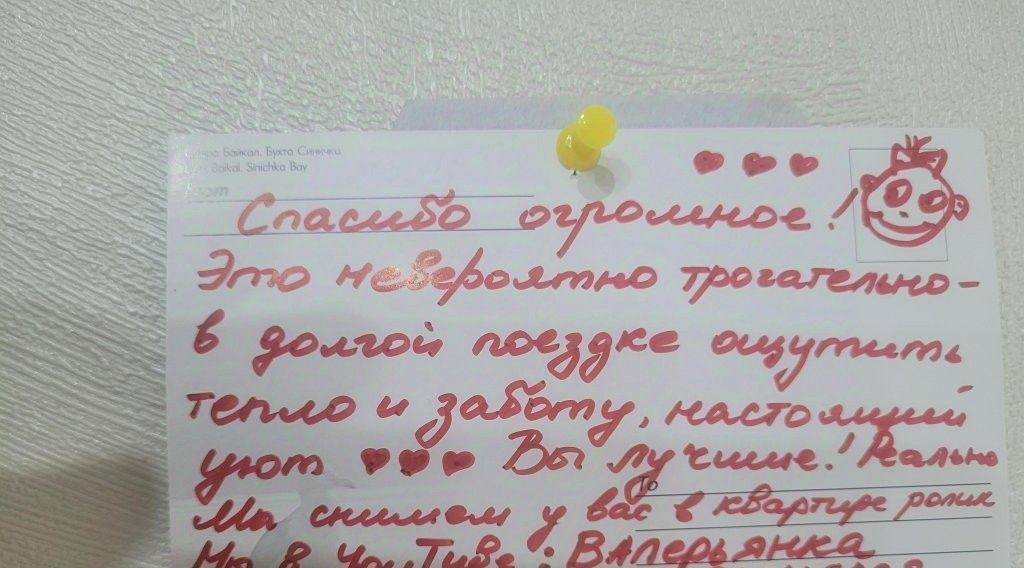 Байкал. Бухта Синичка
Baikal. Sinichka Bay
Спасибо огромное!
Это невероятно трогательно-
в долгой поездке ощутить
тепло и заботу, настоящий
уют Вы лучшие! Реально
To
Мы снимем у вас в квартире ролик
Мы в YouTube: ВАЛЕРЬЯНКА